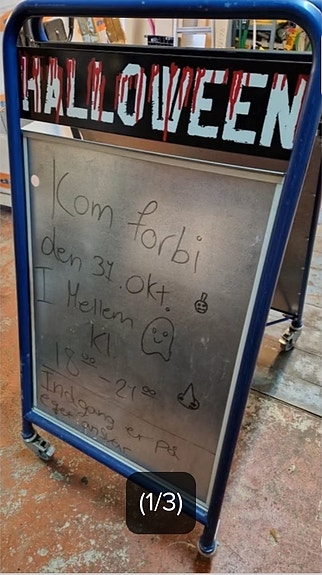 HALLOWEEN
Kom forbi
den 31. Okt.
I Mellem
Kl.
18⁰⁰ - 21⁰⁰
Indgang er på
(1/3)